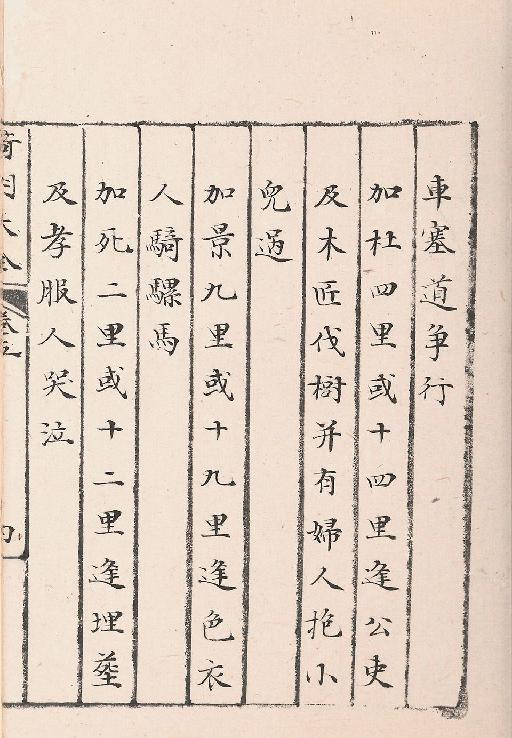 車塞道争行
加杜四里或十四里逢公吏
及木匠伐樹并有婦人抱小
兒過
加景九里或十九里逢色衣
人騎騾馬
加死二里或十二里逢埋葬
及孝服人哭泣
大全 卷五